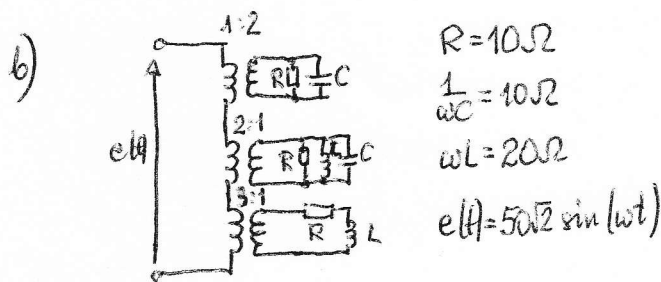 b)
1:2
R C
e(t)
2:1
R L C
3:1
R L
R=10Ω
1/ωC=10Ω
ωL=20Ω
e(t)=50√2 sin(ωt)